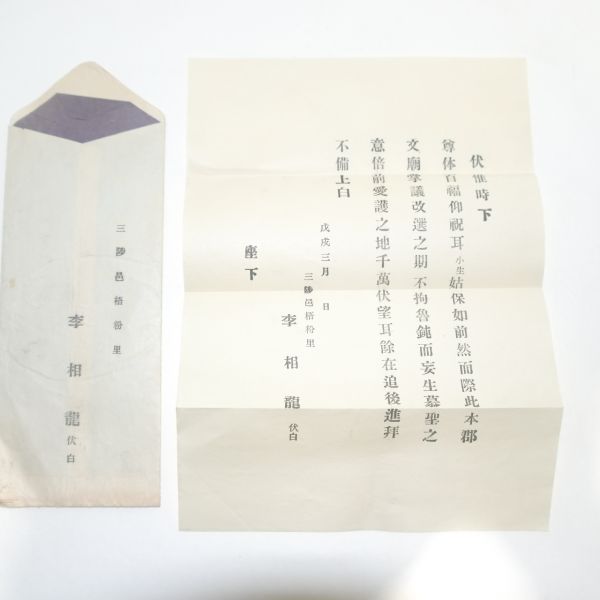 伏惟時下
尊体百福仰祝耳小生姑保如前然而際此本郡
文廟掌議改選之期不拘魯鈍而妄生慕聖之
意倍前愛護之地千萬伏望耳餘在追後進拜
不備上白
戊戌三月 日
三陟邑梧粉里
李相龍 伏白
座下
三陟邑梧粉里
李相龍 伏白